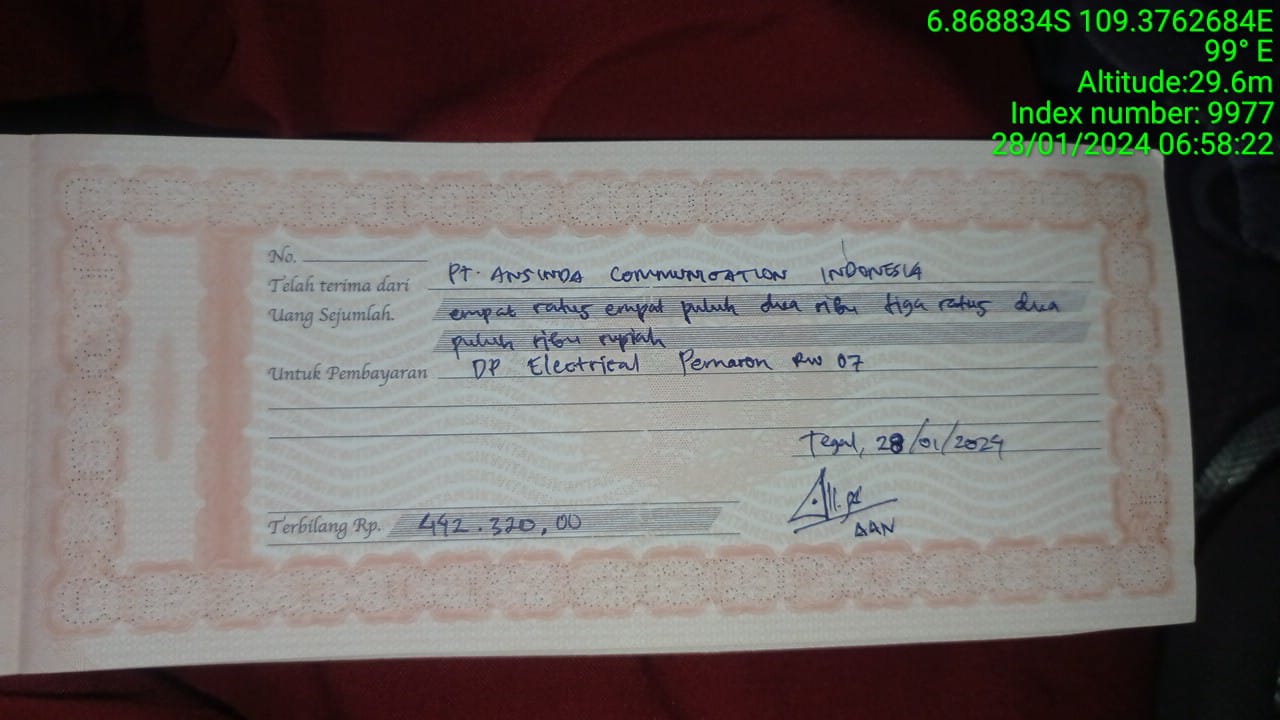 6.868834S 109.3762684E
99° E
Altitude:29.6m
Index number: 9977
28/01/2024 06:58:22
No.
Telah terima dari PT. ANSINDA COMMUNICATION INDONESIA
Uang Sejumlah. empat ratus empat puluh dua ribu tiga ratus dua
puluh ribu rupiah
Untuk Pembayaran DP Electrical Pemaron RW 07
Tegal, 28/01/2024
Terbilang Rp. 442.320,00
AAN